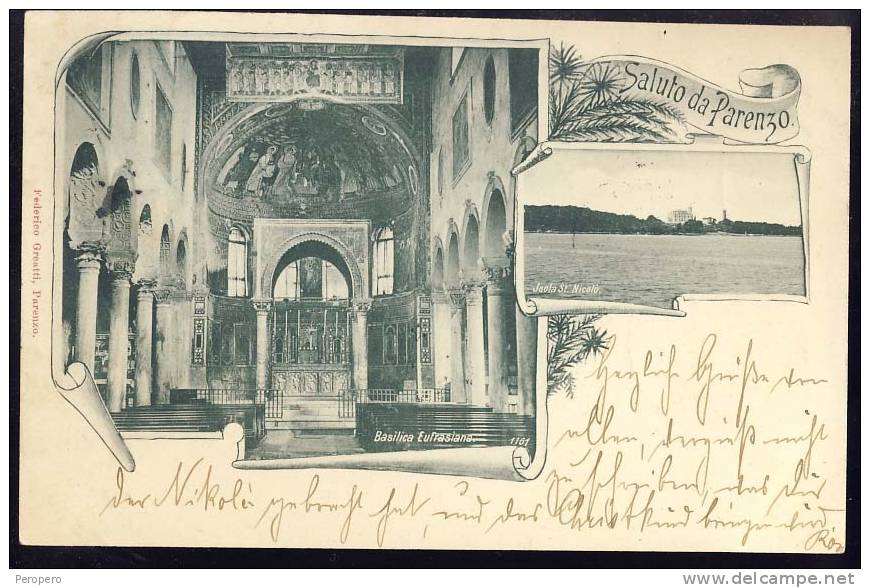 Saluto da Parenzo.
Federico Greatti, Parenzo.
Jsola St. Nicolò.
Basilica Eufrasiana.
1161
Herzliche Grüße von
allen, vergiß nicht
zu schreiben, was Dir
der Nikolo gebracht hat, und das Christkind bringen wird
Peropero
www.delcampe.net